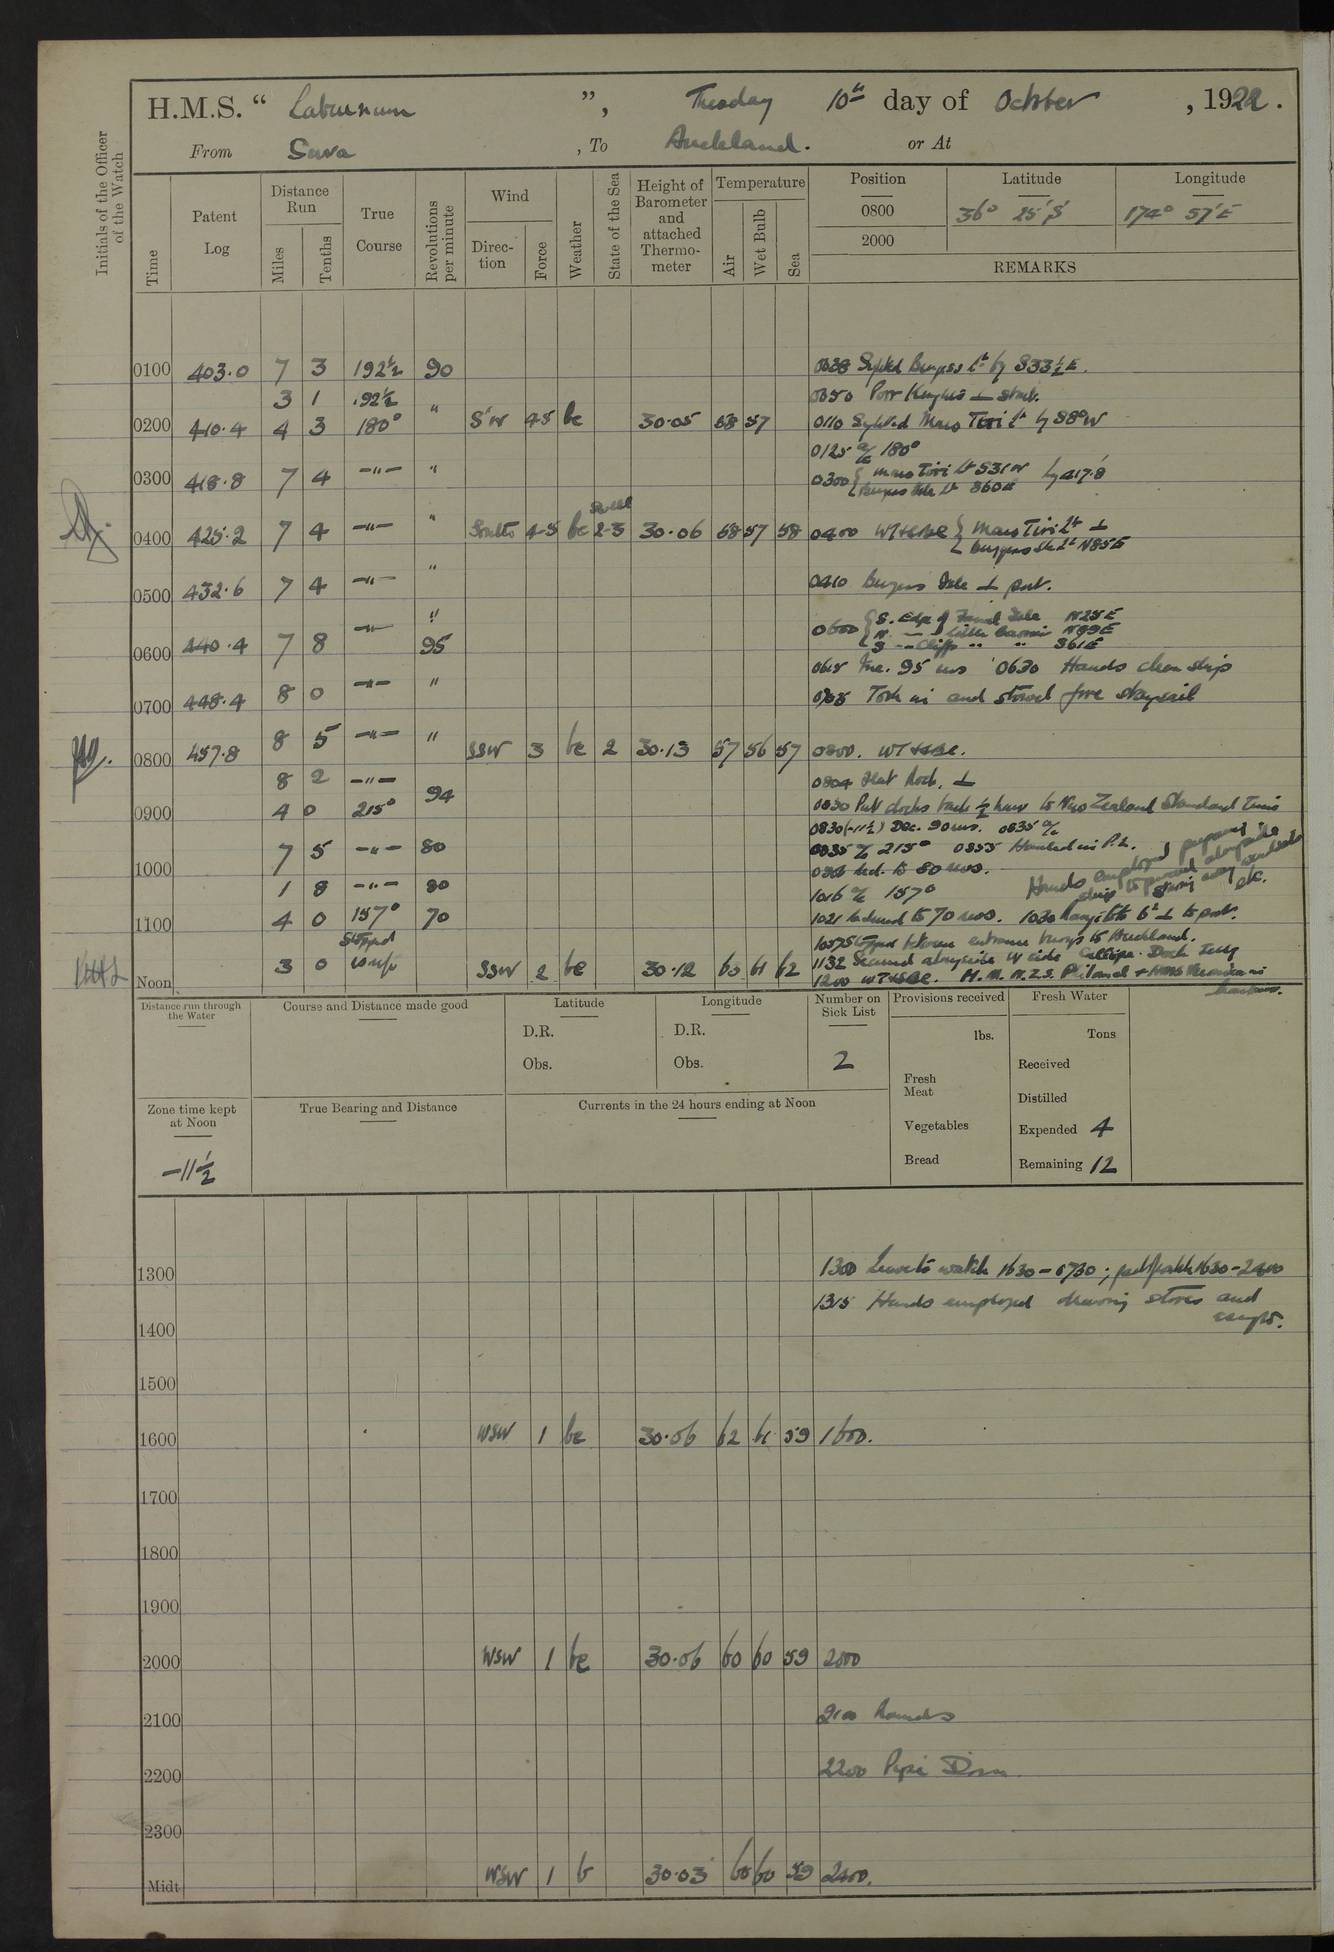 H.M.S. “ Laburnum ”, Tuesday 10th day of October, 1922.
From Suva, To Auckland. or At
Initials of the Officer of the Watch
Time
Patent Log
Distance Run
Miles
Tenths
True Course
Revolutions per minute
Wind
Direction
Force
Weather
State of the Sea
Height of Barometer and attached Thermometer
Temperature
Air
Wet Bulb
Sea
Position Latitude Longitude
0800 36° 25' S 174° 57' E
2000
REMARKS
0100 403.0 7 3 192½ 90 0038 Sighted Burgess Lt by S33½E.
3 1 192½ " 0050 Poor Knights ⊥ starb.
0200 410.4 4 3 180° S'W 4-5 bc 30.05 58 57 0110 Sighted Moko Tiri Lt by S8°W
0125 a/c 180°
0300 418.8 7 4 —"— " 0300 { Moko Tiri Lt S31W by 417.8
Burgess Isle Lt S60E
0400 425.2 7 4 —"— " 4-5 bc 2-3 30.06 58 57 58 0400 WT&SBC { Moko Tiri Lt ⊥
Burgess Isle Lt N85E
0500 432.6 7 4 —"— " 0410 Burgess Isle ⊥ port.
0600 440.4 7 8 —"— " 95 0600 { S. Edge of Isle N25E
N. — Little Barrier N89E
S — Cliffs " " S61E
0615 Inc. 95 revs 0630 Hands clean ship
0700 448.4 8 0 —"— " Took in and stowed fore staysail
0800 457.8 8 5 —"— " SSW 3 bc 2 30.13 57 56 57 0800. WT&SBC.
8 2 —"— 94 0804 Flat Rock. ⊥
0900 4 0 215° 0830 Put clocks back ½ hour to New Zealand Standard Time
0830(-11½) Dec. 90 revs. 0835 a/c
1000 7 5 —"— 80 0835 a/c 215° 0855 Hauled in P.L.
red. to 80 revs.
1 8 —"— 80 1016 a/c 157° Hands employed preparing ship to proceed alongside etc.
1100 4 0 157° 70 1021 Reduced to 70 revs. 1030 ⊥ to port.
Stopped 1057 Stopped between entrance buoys to Auckland.
Noon 3 0 SSW 2 bc 30.12 60 61 62 1132 Secured alongside W side Calliope Dock Jetty
1200 WT&SBC. H.M.N.Z.S. Philomel & HMS Veronica in harbour.
Distance run through the Water
Course and Distance made good
Latitude
D.R.
Obs.
Longitude
D.R.
Obs.
Number on Sick List
2
Provisions received
lbs.
Fresh Meat
Vegetables
Bread
Fresh Water
Tons
Received
Distilled
Expended 4
Remaining 12
Zone time kept at Noon
-11½
True Bearing and Distance
Currents in the 24 hours ending at Noon
1300 1300 Leave to watch 1630-0730; 1630-2400
1315 Hands employed drawing stores and
1400
1500
1600 WSW 1 bc 30.06 62 61 59 1600.
1700
1800
1900
2000 WSW 1 bc 30.06 60 60 59 2000
2100 2100 Rounds
2200 2200 Pipe Down
2300
Midt WSW 1 b 30.03 60 60 59 2400.